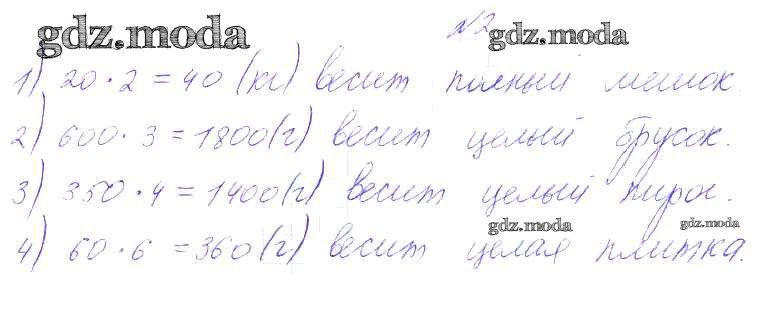 gdz.moda
№2
gdz.moda
1) 20 · 2 = 40 (кг) весит полный мешок.
2) 600 · 3 = 1800 (г) весит целый брусок.
3) 350 · 4 = 1400 (г) весит целый пирог.
gdz.moda
gdz.moda
4) 60 · 6 = 360 (г) весит целая плитка.